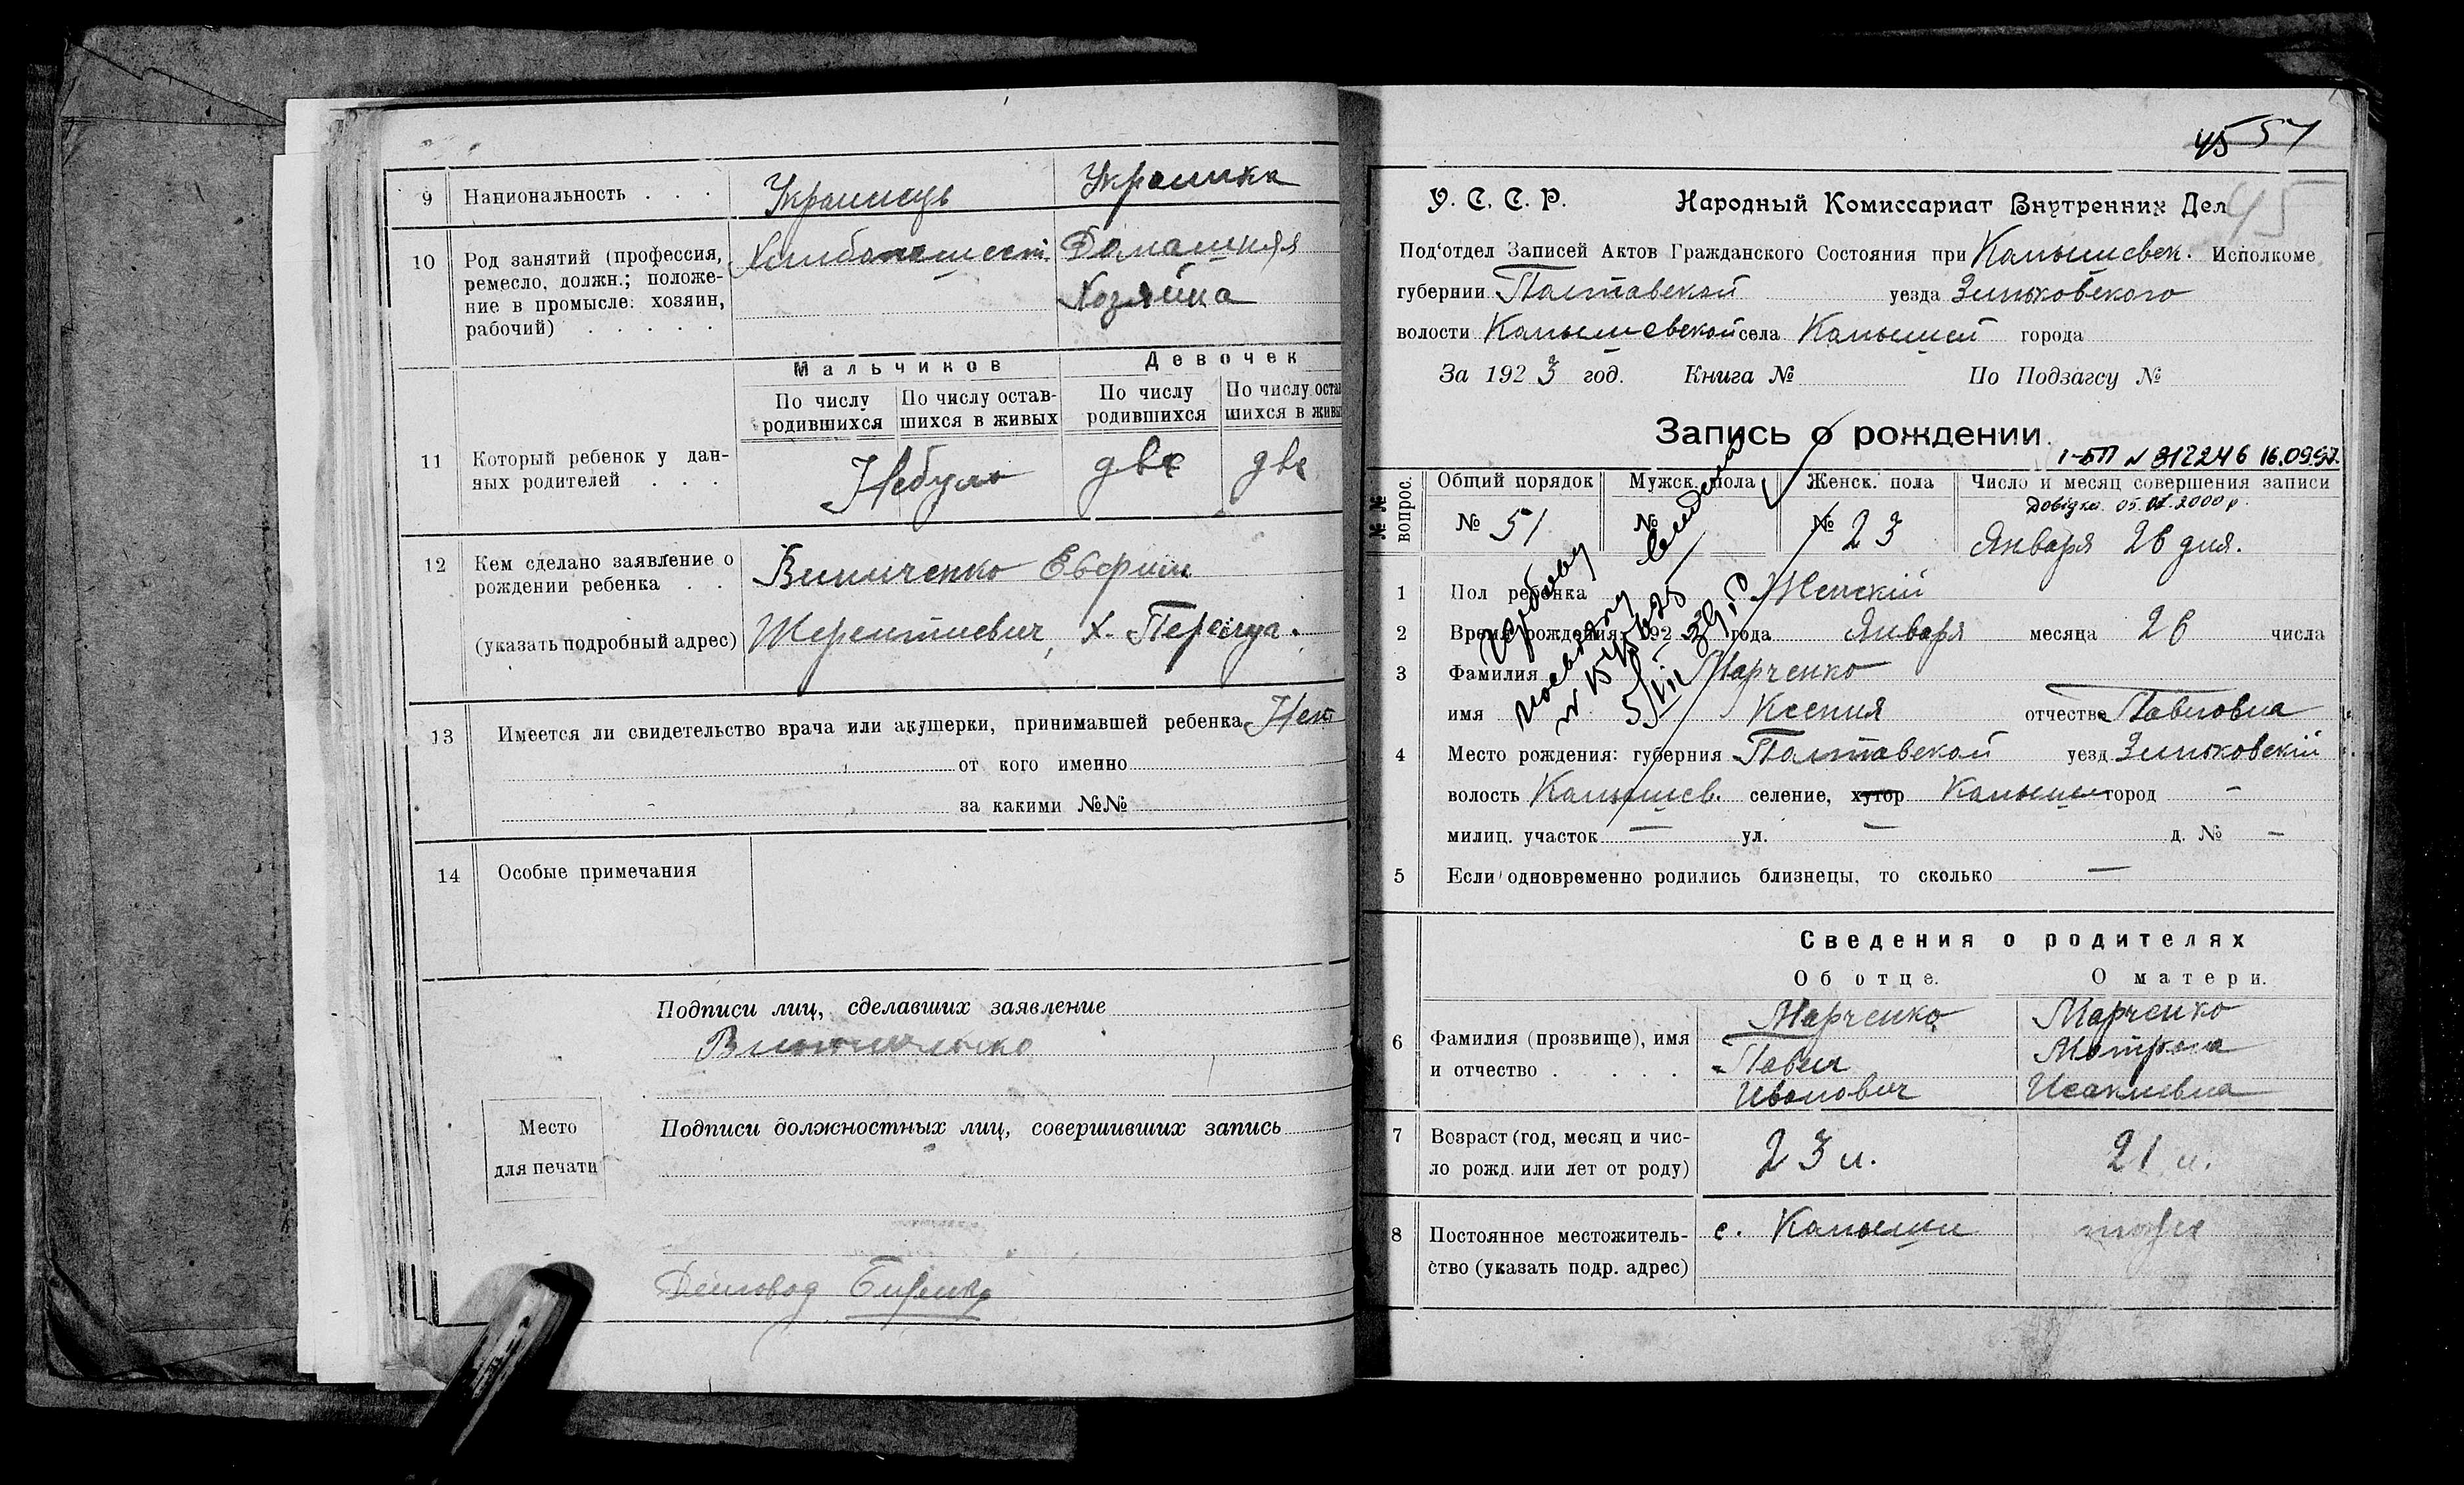 9 Национальность . . . Украинець Украинка
10 Род занятий (профессия, ремесло, должн.; положе-
ние в промысле: хозяин,
рабочий) . . . . . Домашняя
Хозяйка
Мальчиков Девочек
По числу родившихся По числу остав-шихся в живых По числу родившихся По числу оста шихся в живы
11 Который ребенок у дан-
ных родителей . . . Небуло две две
12 Кем сделано заявление о
рождении ребенка . . Винниченко
(указать подробный адрес) Терентиевич, х.
13 Имеется ли свидетельство врача или акушерки, принимавшей ребенка Нет
от кого именно
за какими №№
14 Особые примечания
Подписи лиц, сделавших заявление
Место
для печати
Подписи должностных лиц, совершивших запись
Деловод
45 57
У. С. С. Р. Народный Комиссариат Внутренних Дел 45
Под'отдел Записей Актов Гражданского Состояния при Камышевск. Исполкоме
губернии Полтавской уезда Зиньковского
волости Камышевской села Камышей города
За 1923 год. Книга № По Подзагсу №
Запись о рождении.
І-БП № 312246 16.09.97.
№№ вопрос. Общий порядок Мужск. пола Женск. пола Число и месяц совершения записи
Довідка 05. 2000 р.
№ 51 № № 23 Января 26 дня.
1 Пол ребенка Женскій
2 Время рождения: 192 года Января месяца 26 числа
3 Фамилия Марченко
имя Ксения отчество Павловна
4 Место рождения: губерния Полтавской уезд Зиньковскій
волость Камышев. селение, хутор Камыши город -
милиц. участок — ул. — д. № -
5 Если одновременно родились близнецы, то сколько —
Сведения о родителях
Об отце. О матери.
6 Фамилия (прозвище), имя
и отчество . . . . . Марченко Марченко
Павел Мотрона
Иванович Исакиевна
7 Возраст (год, месяц и чис-
ло рожд. или лет от роду) 23 л. 21 л.
8 Постоянное местожитель-
ство (указать подр. адрес) с. Камыши тоже